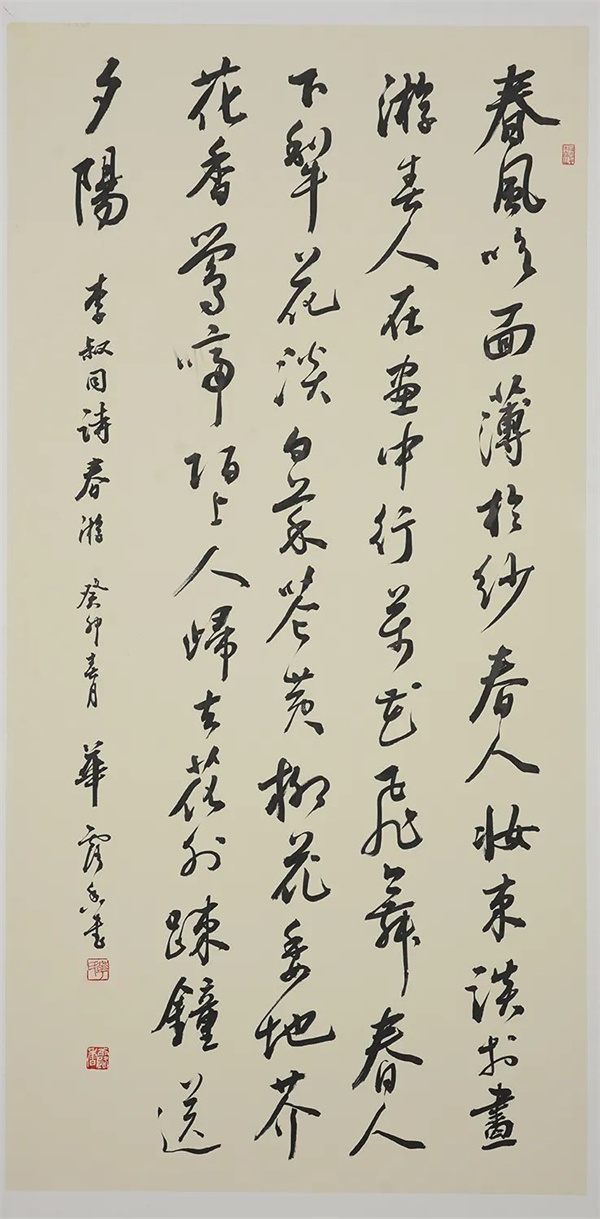 春風吹面薄於紗春人妝束談於畫
游春人在画中行萬花飛舞春人
下犁花淡白菜花黄柳花委地芥
花香鶯啼陌上人歸去花外疎鐘送
夕陽 李叔同詩春游 癸卯春月 華 香書